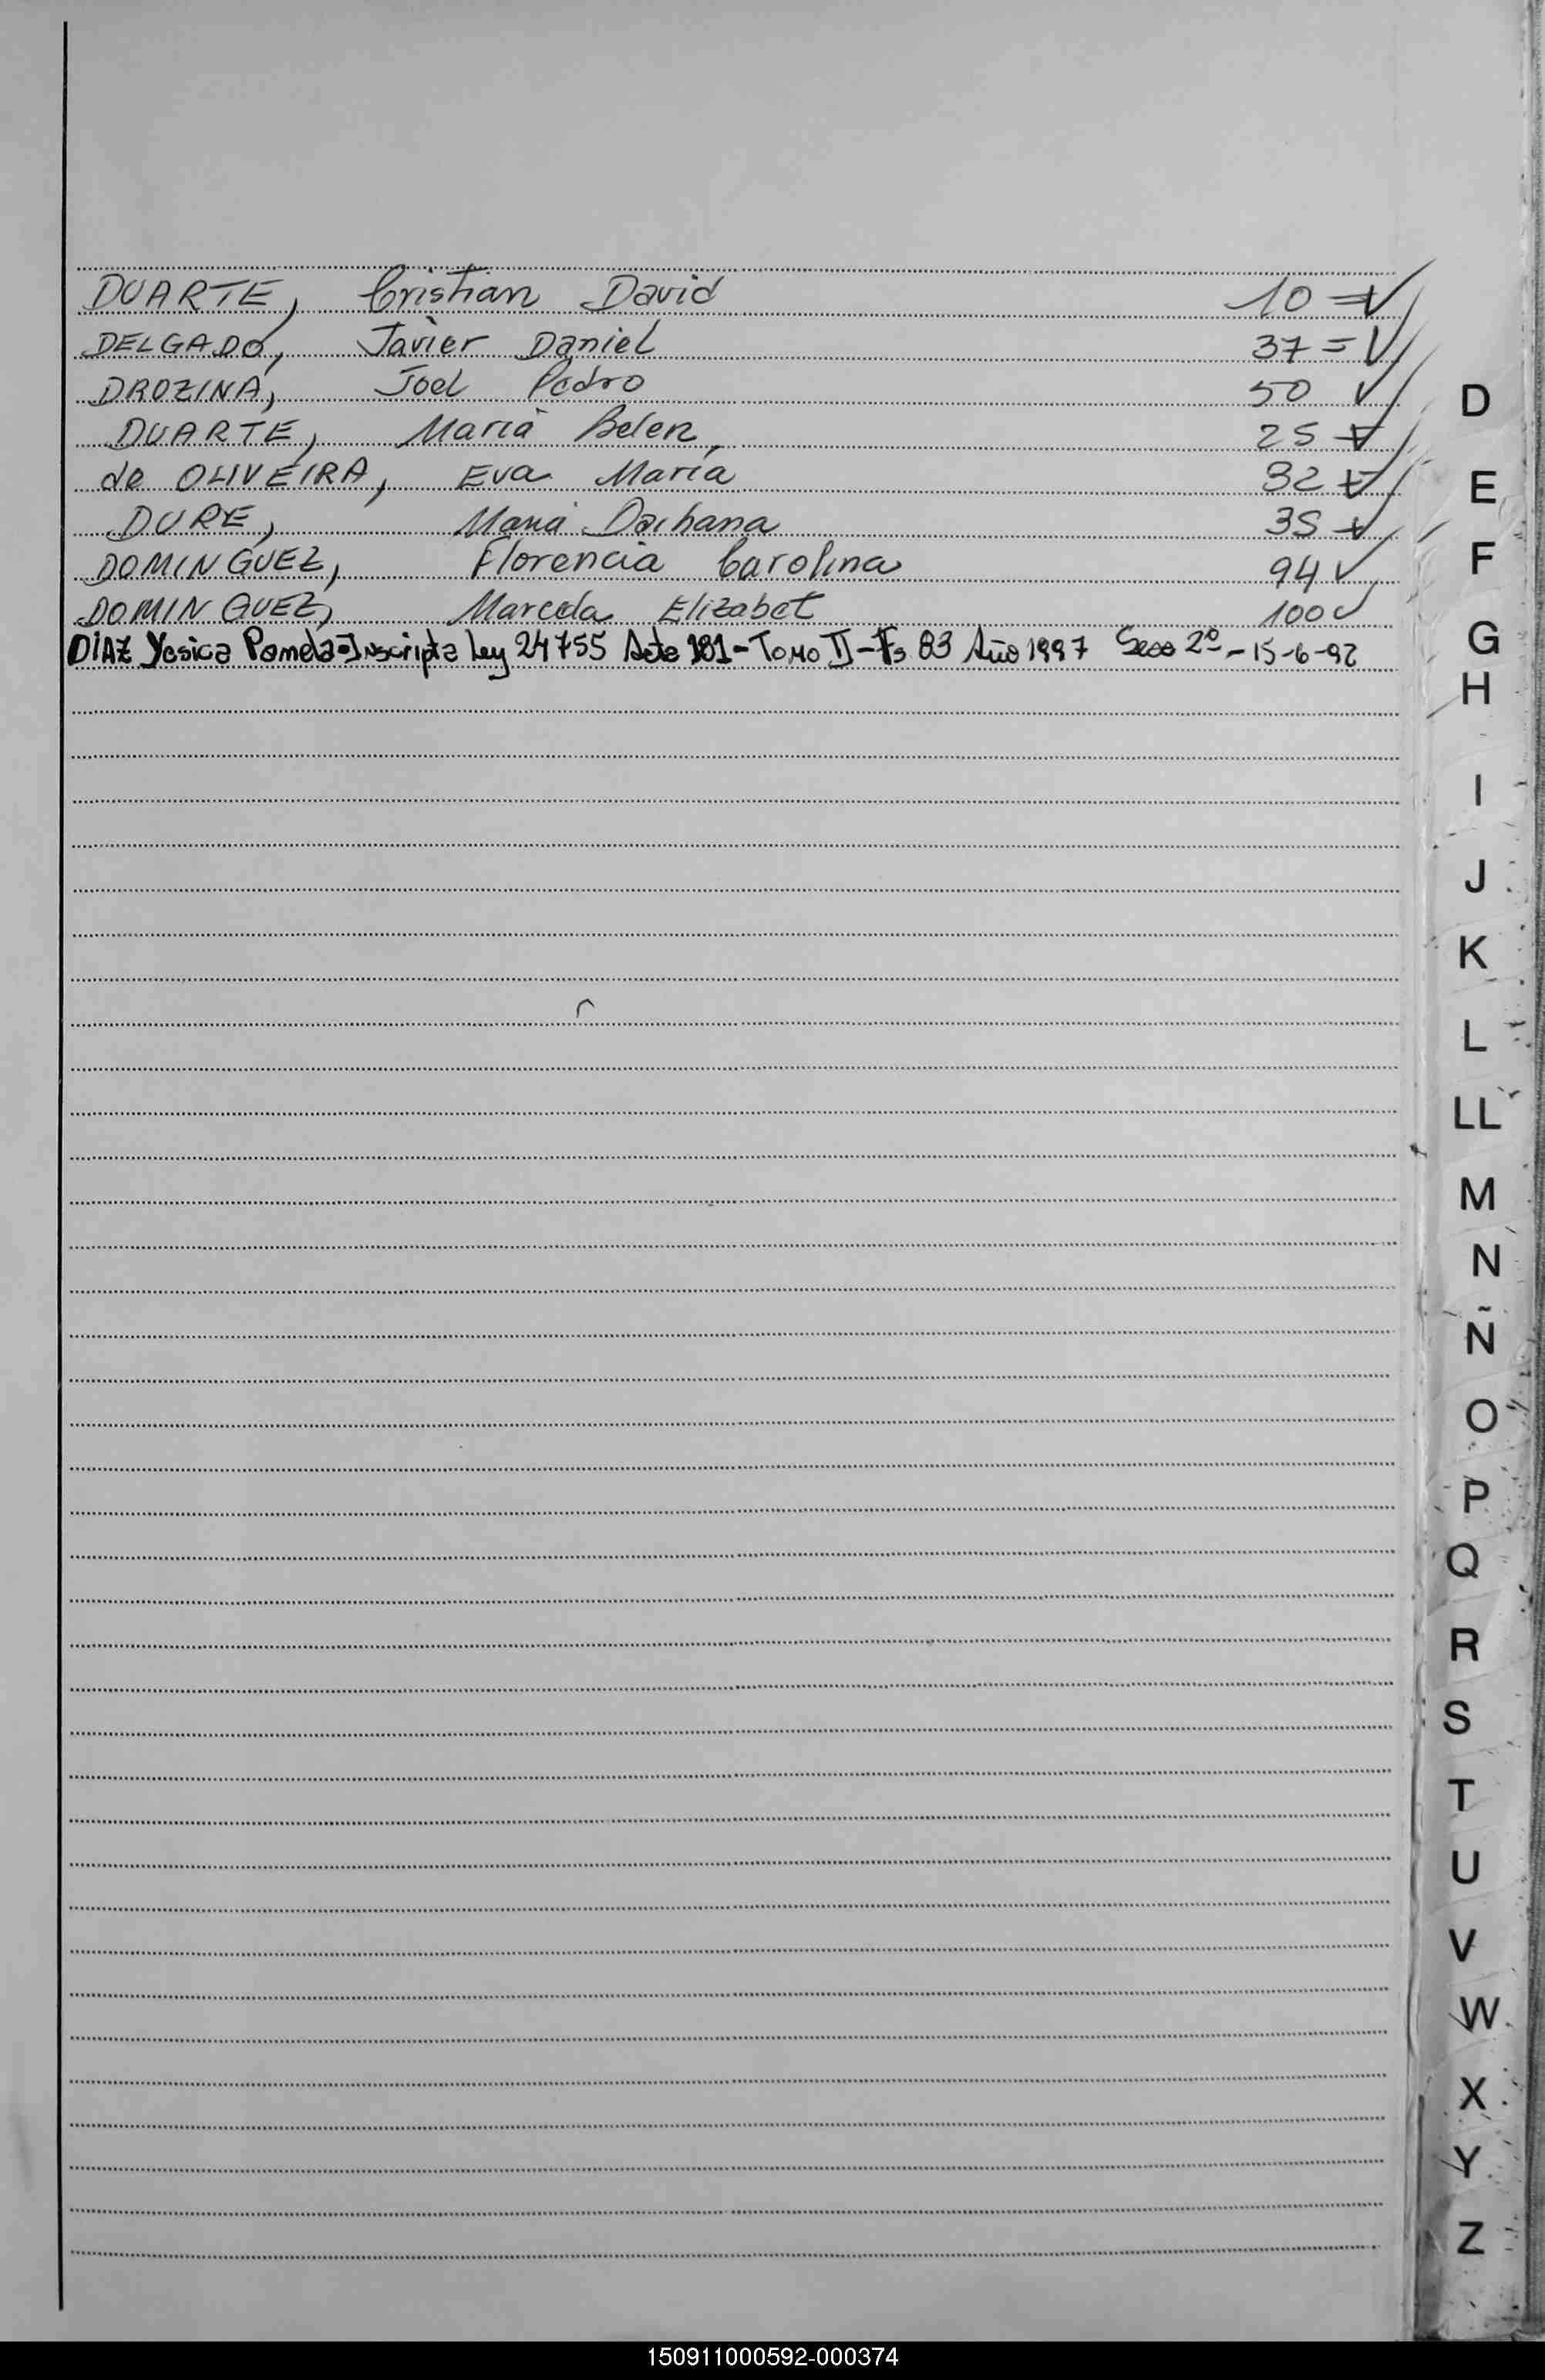 DUARTE, Cristian David 10 = ✓
DELGADO, Javier Daniel 37 = ✓
DROZINA, Joel Pedro 50 ✓
DUARTE, María Belen, 25 = ✓
de OLIVEIRA, Eva María 32 = ✓
DURE, María Daihana 35 = ✓
DOMINGUEZ, Florencia Carolina 94 ✓
DOMINGUEZ, Marcela Elizabet 100 ✓
DIAZ Yesica Pamela = Inscripta Ley 24755 Acta 181 - Tomo II - Fs 83 Año 1997 Secc 2º - 15-6-92
D
E
F
G
H
I
J
K
L
LL
M
N
Ñ
O
P
Q
R
S
T
U
V
W
X
Y
Z
150911000592-000374